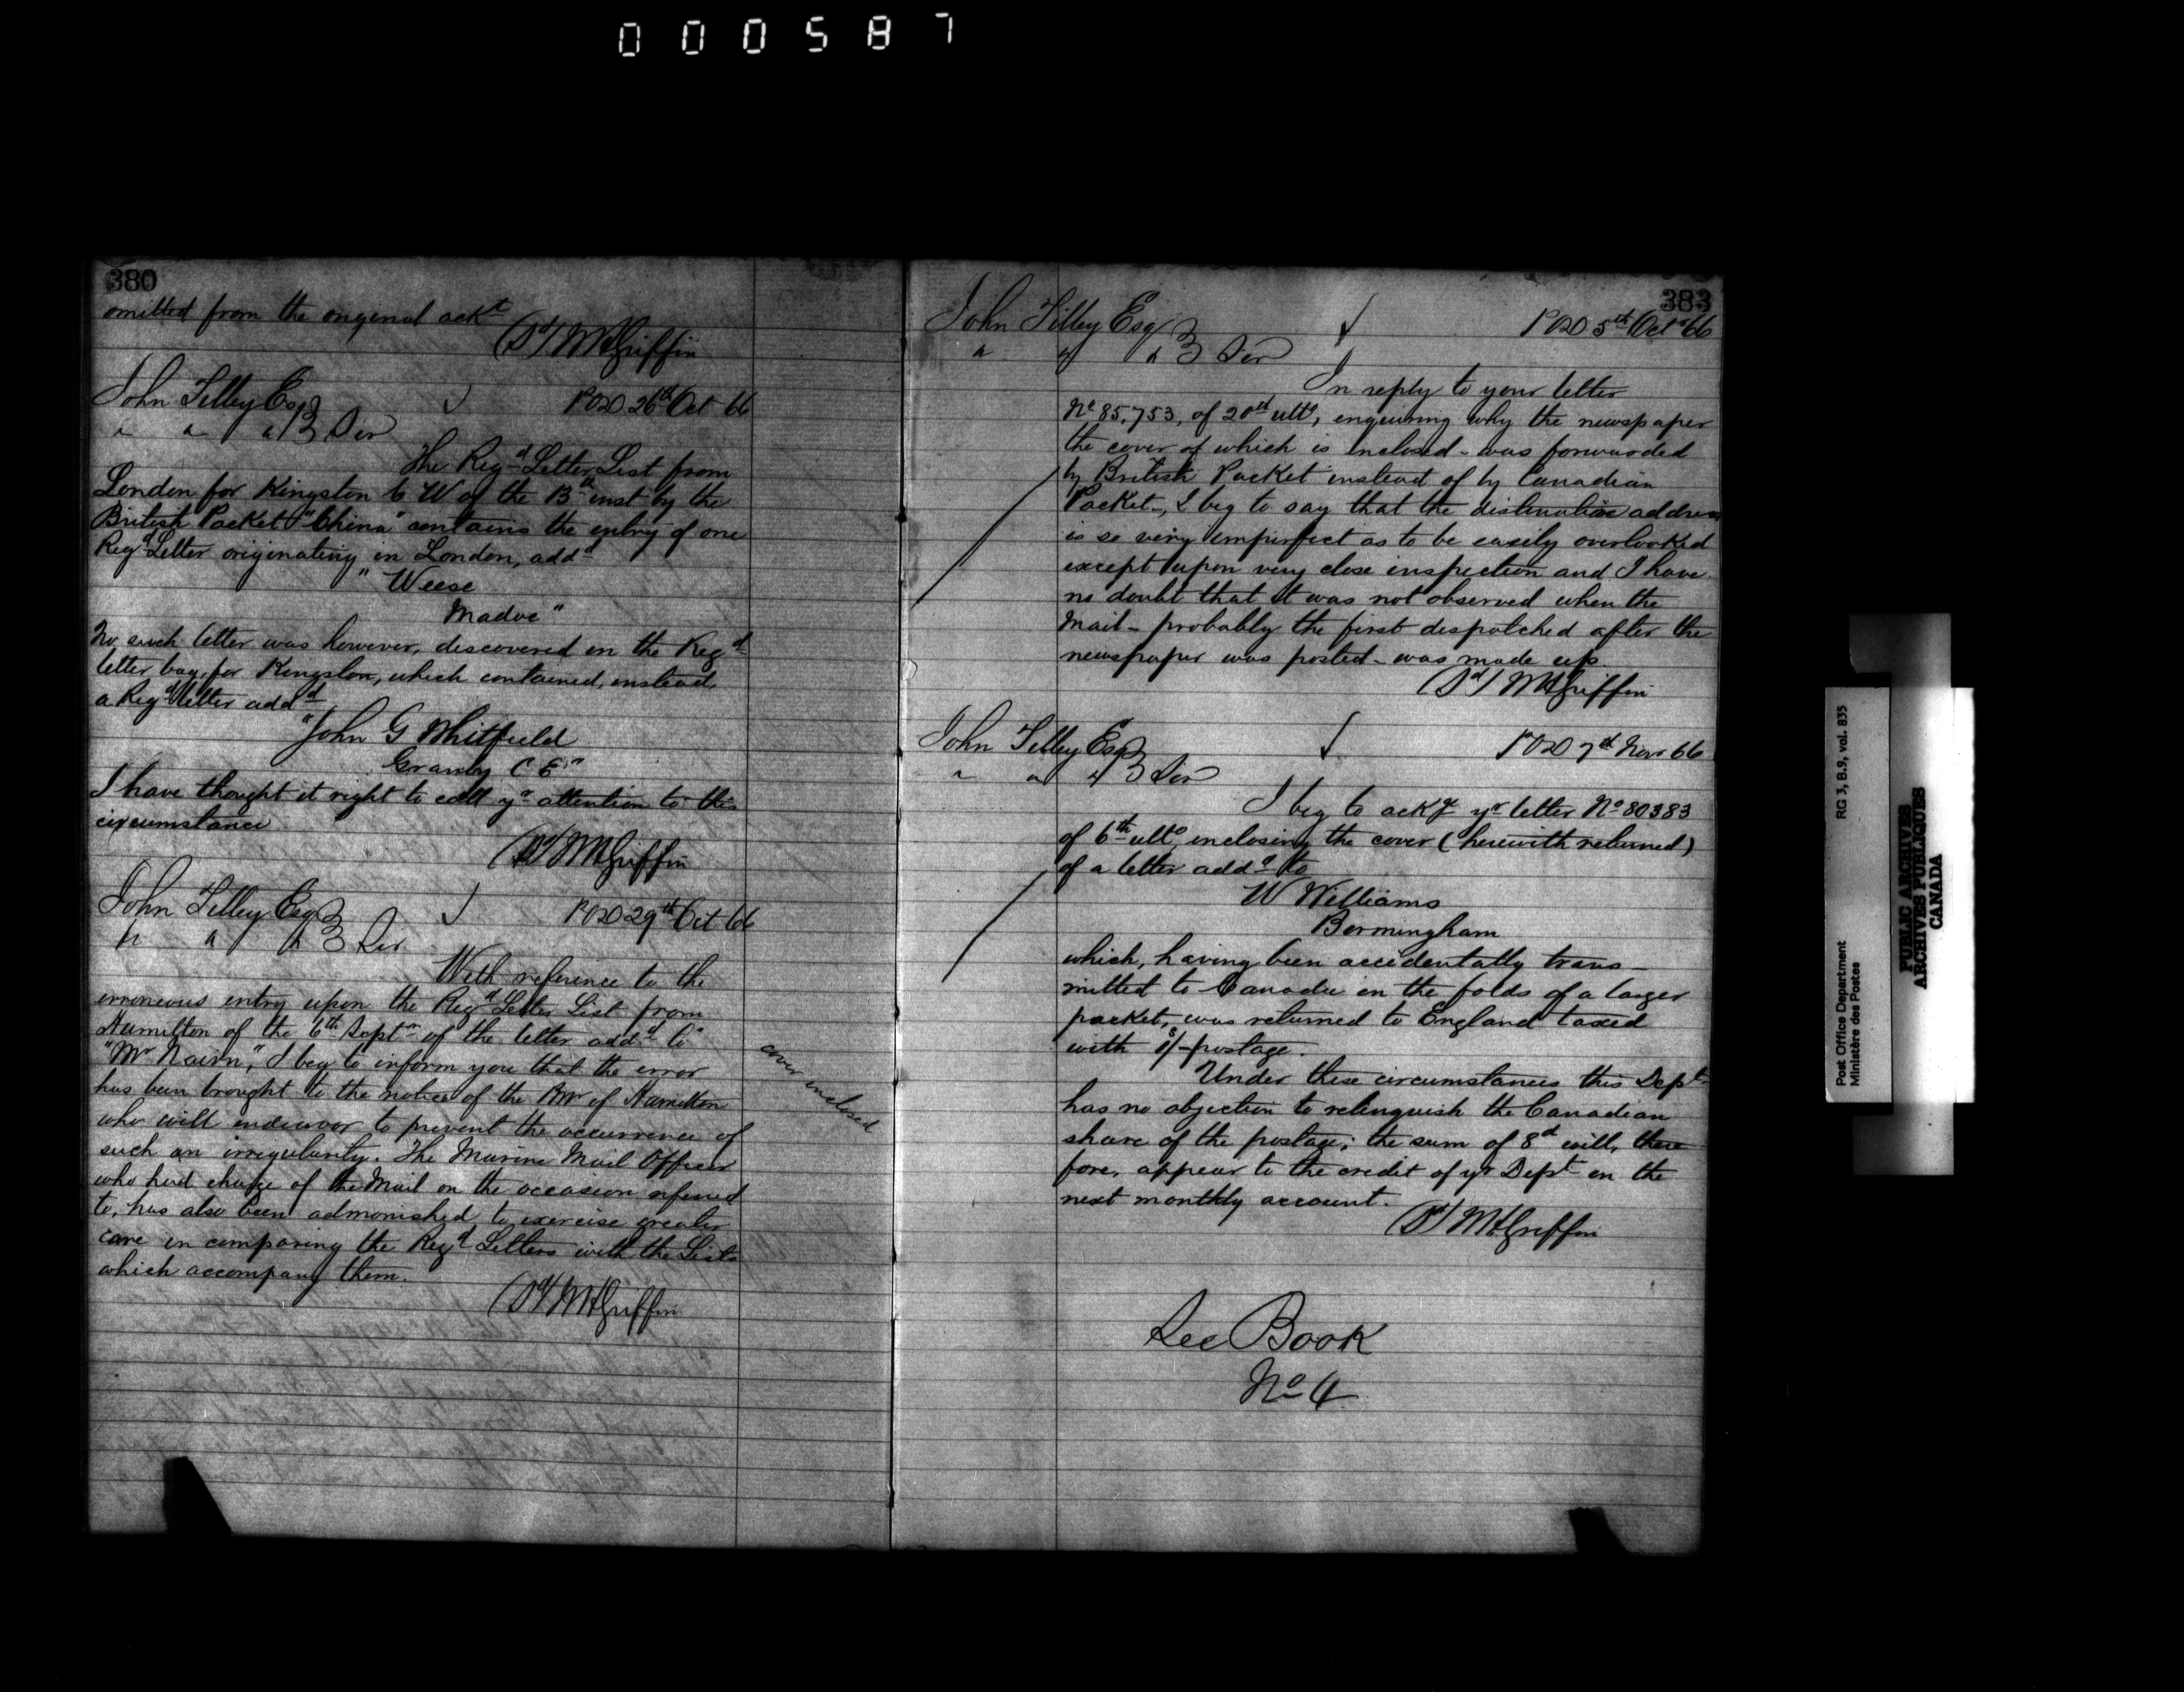 000587
380
omitted from the original ackt
(Sd) W H Griffin
John Tilley Esq
POD 26th Oct 66
Sir
The Regd Letter List from
London for Kingston C W of the 13th inst by the
British Packet "China" contains the entry of one
Regd Letter originating in London, addd
"Weese
Madoc"
No such letter was however, discovered in the Regd
letter bag, for Kingston, which contained, instead,
a Regd letter addd
"John G Whitfield
Granby C E"
I have thought it right to call yr attention to this
circumstance
(Sd) W H Griffin
John Tilley Esq
POD 29th Oct 66
Sir
With reference to the
erroneous entry upon the Regd Letter List from
Hamilton of the 6th Septr of the letter addd to
"Mr Nairn", I beg to inform you that the error
has been brought to the notice of the P Mr of Hamilton
who will endeavor to prevent the occurrence of
such an irregularity. The Marine Mail Officer
who had charge of the Mail on the occasion referred
to, has also been admonished to exercise greater
care in comparing the Regd Letters with the Lists
which accompany them.
(Sd) W H Griffin
cover enclosed
383
John Tilley Esq
POD 5th Oct 66
Sir
In reply to your letter
No 85,753, of 20th ulto, enquiring why the newspaper
the cover of which is inclosed - was forwarded
by British Packet instead of by Canadian
Packet -, I beg to say that the distinative address
is so very imperfect as to be easily overlooked
except upon very close inspection and I have
no doubt that it was not observed when the
Mail - probably the first despatched after the
newspaper was posted - was made up
(Sd) W H Griffin
John Tilley Esq
POD 7th Novr 66
Sir
I beg to ackge yr letter No 80383
of 6th ulto, inclosing the cover (herewith returned)
of a letter addd to
W Williams
Birmingham
which, having been accidentally trans-
mitted to Canada in the folds of a larger
packet, was returned to England taxed
with postage.
Under these circumstances this Dept
has no objection to relinquish the Canadian
share of the postage; the sum of 8d will, there
fore, appear to the credit of yr Dept in the
next monthly account.
(Sd) W H Griffin
See Book
No 4
Post Office Department
Ministère des Postes
RG 3, B.9, vol. 835
PUBLIC ARCHIVES
ARCHIVES PUBLIQUES
CANADA